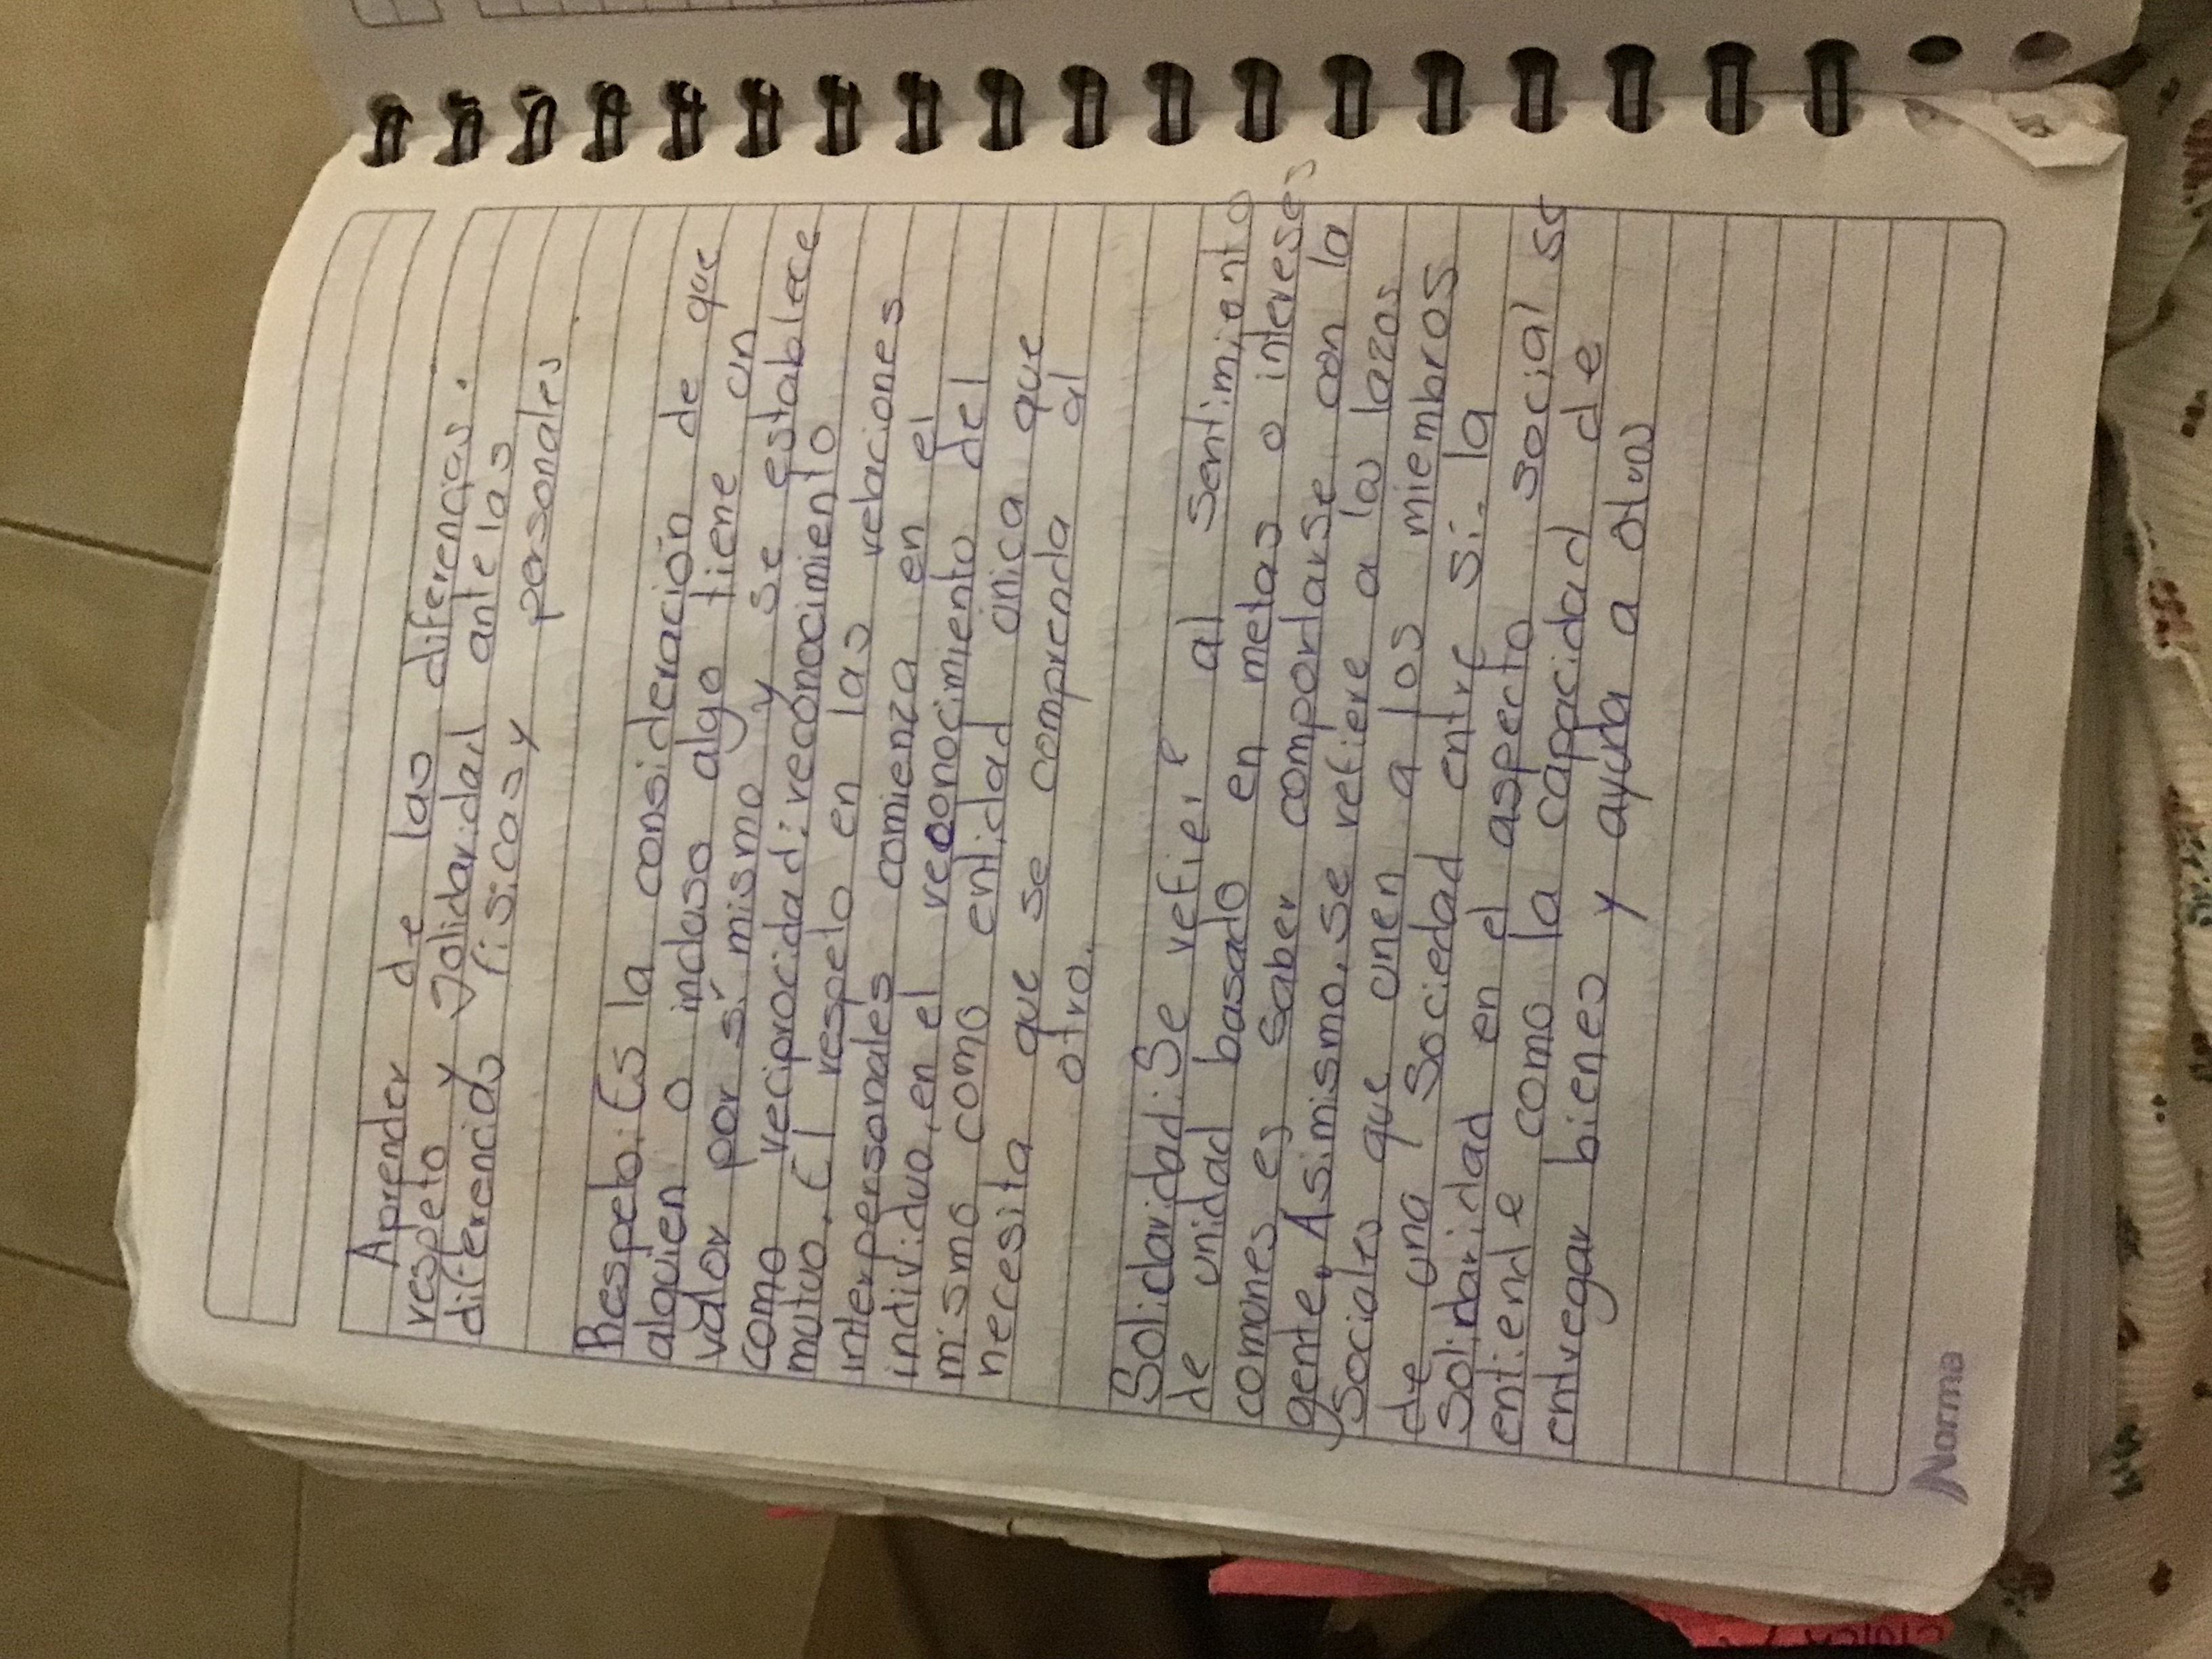 Aprender de las diferencias.
respeto y Solidaridad ante las
diferencias fisicas y personales
Respeto: Es la consideración de que
alguien o incluso algo tiene un
valor por sí mismo y se establece
como reciprocidad: reconocimiento
mutuo. El respeto en las relaciones
interpensonales comienza en el
individuo, en el reconocimiento del
mismo como entidad única que
necesita que se comprenda al
otro.
Solidaridad: Se refiere al sentimiento
de unidad basado en metas o intereses
comunes es saber comportarse con la
gente. Asimismo, se refiere a la lazos
Sociales que unen a los miembros
de una sociedad entre sí. la
Solidaridad en el aspecto social se
entiende como la capacidad de
entregar bienes y ayuda a otros
Norma